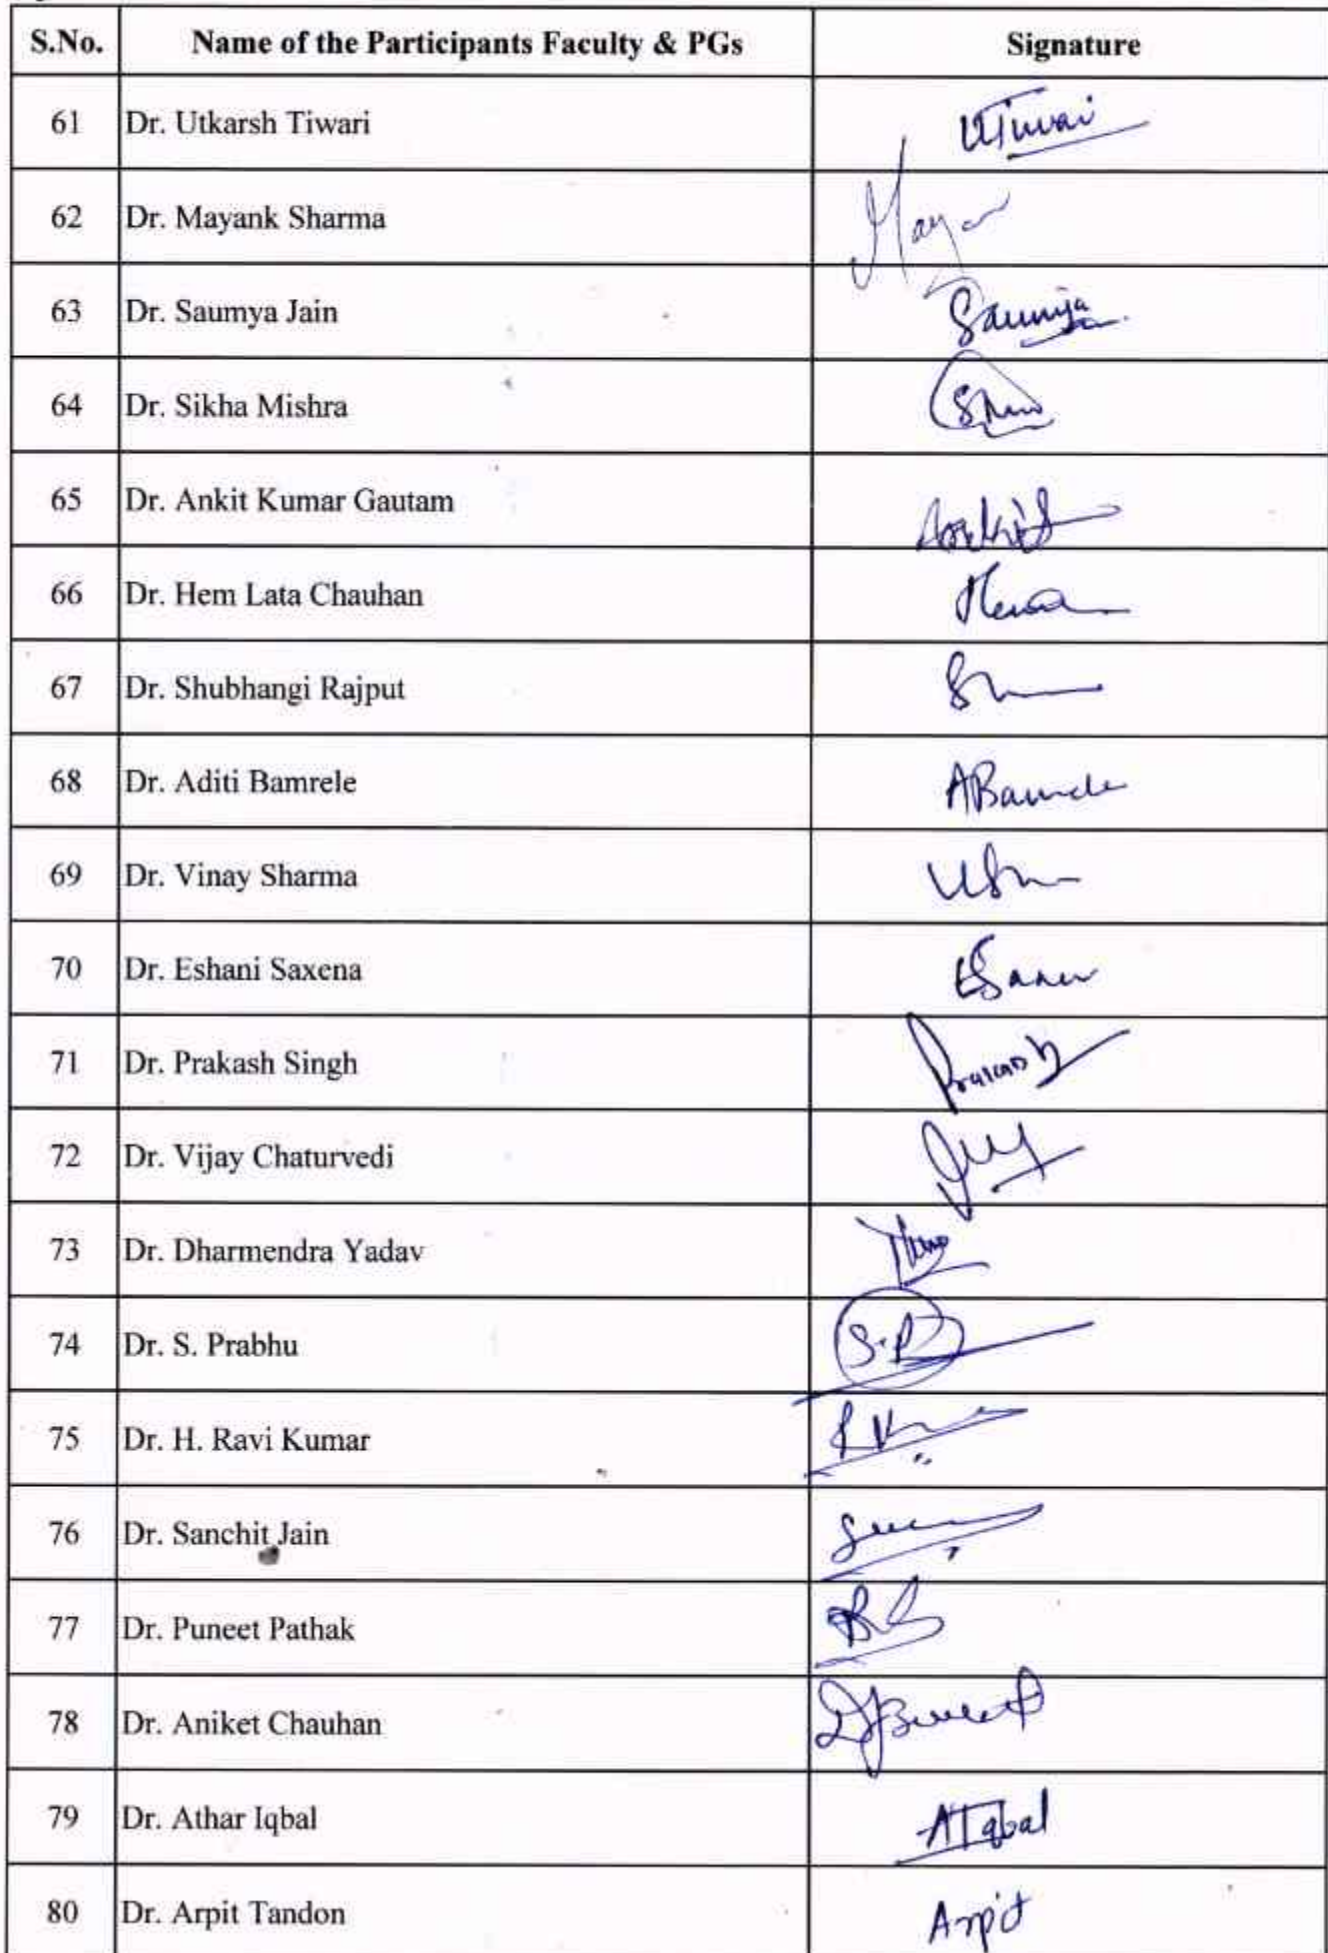 S.No. Name of the Participants Faculty & PGs Signature
61 Dr. Utkarsh Tiwari UTiwari
62 Dr. Mayank Sharma
63 Dr. Saumya Jain Saumya
64 Dr. Sikha Mishra
65 Dr. Ankit Kumar Gautam Ankit
66 Dr. Hem Lata Chauhan
67 Dr. Shubhangi Rajput
68 Dr. Aditi Bamrele
69 Dr. Vinay Sharma
70 Dr. Eshani Saxena
71 Dr. Prakash Singh Prakash
72 Dr. Vijay Chaturvedi
73 Dr. Dharmendra Yadav
74 Dr. S. Prabhu S.P
75 Dr. H. Ravi Kumar
76 Dr. Sanchit Jain
77 Dr. Puneet Pathak
78 Dr. Aniket Chauhan
79 Dr. Athar Iqbal AIqbal
80 Dr. Arpit Tandon Arpit